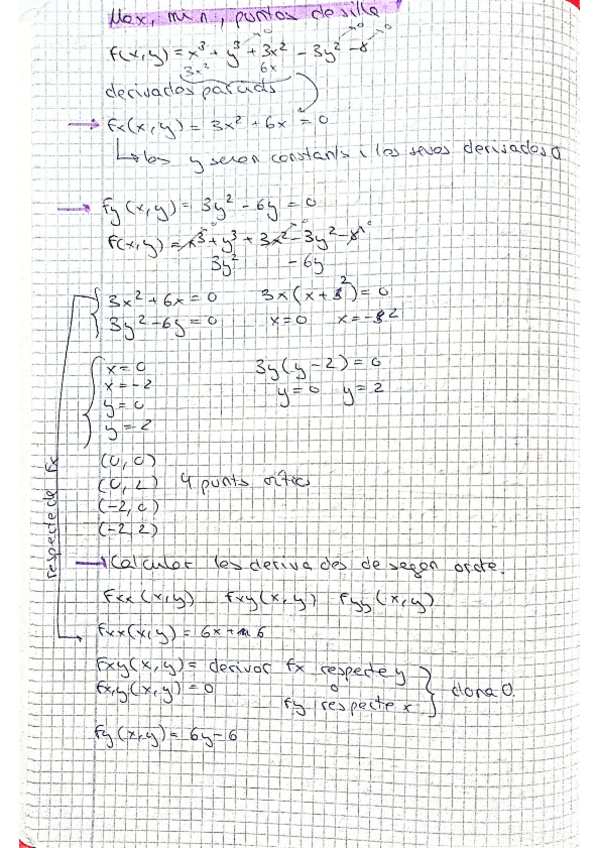 Max, min, puntos de silla
f(x,y) = x³ + y³ + 3x² - 3y² - 8
3x² 6x
derivades parcials
→ fx(x,y) = 3x² + 6x = 0
↳ les y seran constants i les seves derivades 0
→ fy(x,y) = 3y² - 6y = 0
f(x,y) = x³ + y³ + 3x² - 3y² - 8
3y² - 6y
3x² + 6x = 0 3x(x+2) = 0
3y² - 6y = 0 x=0 x=-2
x=0 3y(y-2) = 0
x=-2 y=0 y=2
y=0
y=2
(0,0)
(0,2) 4 punts crítics
(-2,0)
(-2,2)
respecte de fx
→ Calcular les derivades de segon ordre.
fxx(x,y) fxy(x,y) fyy(x,y)
fxx(x,y) = 6x + 6
fxy(x,y) = derivar fx respecte y
fxy(x,y) = 0 o dona 0.
fy respecte x
fy(x,y) = 6y - 6